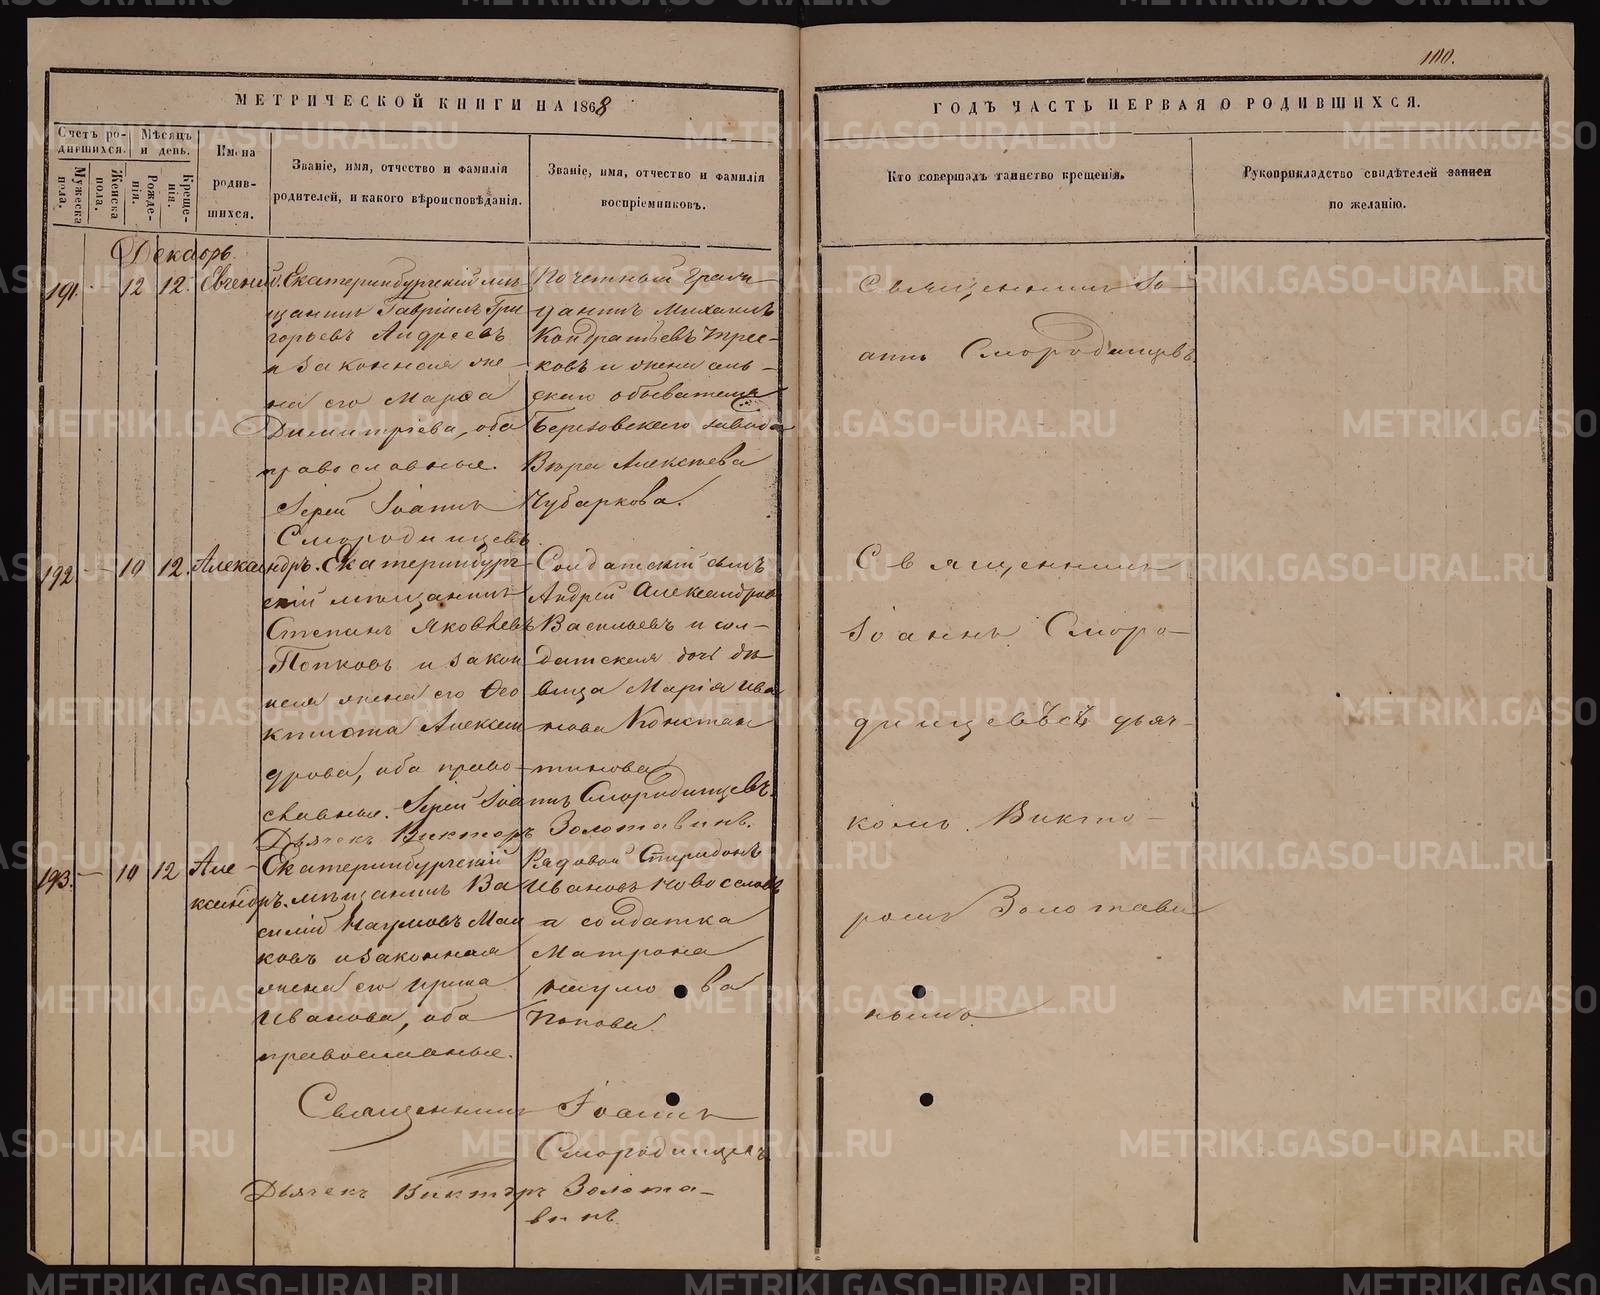 100.
МЕТРИЧЕСКОЙ КНИГИ НА 1868
ГОДЪ ЧАСТЬ ПЕРВАЯ О РОДИВШИХСЯ.
Счетъ ро-
дившихся.
Мѣсяцъ
и день.
Мужеска
пола.
Женска
пола.
Рожде-
нія.
Креще-
нія.
Имена
родив-
шихся.
Званіе, имя, отчество и фамилія
родителей, и какого вѣроисповѣданія.
Званіе, имя, отчество и фамилія
воспріемниковъ.
Кто совершалъ таинство крещенія.
Рукоприкладство свидѣтелей записи
по желанію.
Декабрь
191. 12 12. Евгеній.
Екатеринбургскій мѣ-
щанинъ Гавріилъ Гри
горьевъ Андреевъ
и законная же-
на его Марѳа
Димитріева, оба
православные.
Іерей Іоаннъ
Смородинцевъ.
Почетный граж
данинъ Михаилъ
Кондратьевъ
ковъ и жена
скаго обывателя
Березовскаго завода
Вѣра Алексѣева
Чубаркова.
Священникъ Іо-
аннъ Смородинцевъ
192 — 10 12. Александръ.
Екатеринбург-
скій мѣщанинъ
Степанъ Яковлевъ
Попковъ и закон
ная жена его Ѳео
ктиста Алексан
дрова, оба право-
славные. Іерей Іоаннъ Смородинцевъ.
Дьячекъ Викторъ Золотавинъ.
Солдатскій сынъ
Андрей Александровъ
Васильевъ и сол-
датская дочь дѣ
вица Марія Ива
нова Констан
тинова
Священникъ
Іоаннъ Сморо-
динцевъ съ дьяч-
комъ Викто-
ромъ Золотави
нымъ.
193. — 10 12 Але-
ксандръ.
Екатеринбургскій
мѣщанинъ Ва
силій Наумовъ
ковъ и законная
жена его Ирина
Иванова, оба
православные.
Рядовой Спиридонъ
Ивановъ Новоселовъ
и солдатка
Матрона
Наумова
Попова.
Священникъ Іоаннъ
Смородинцевъ
Дьячекъ Викторъ Золота-
винъ.
METRIKI.GASO-URAL.RU